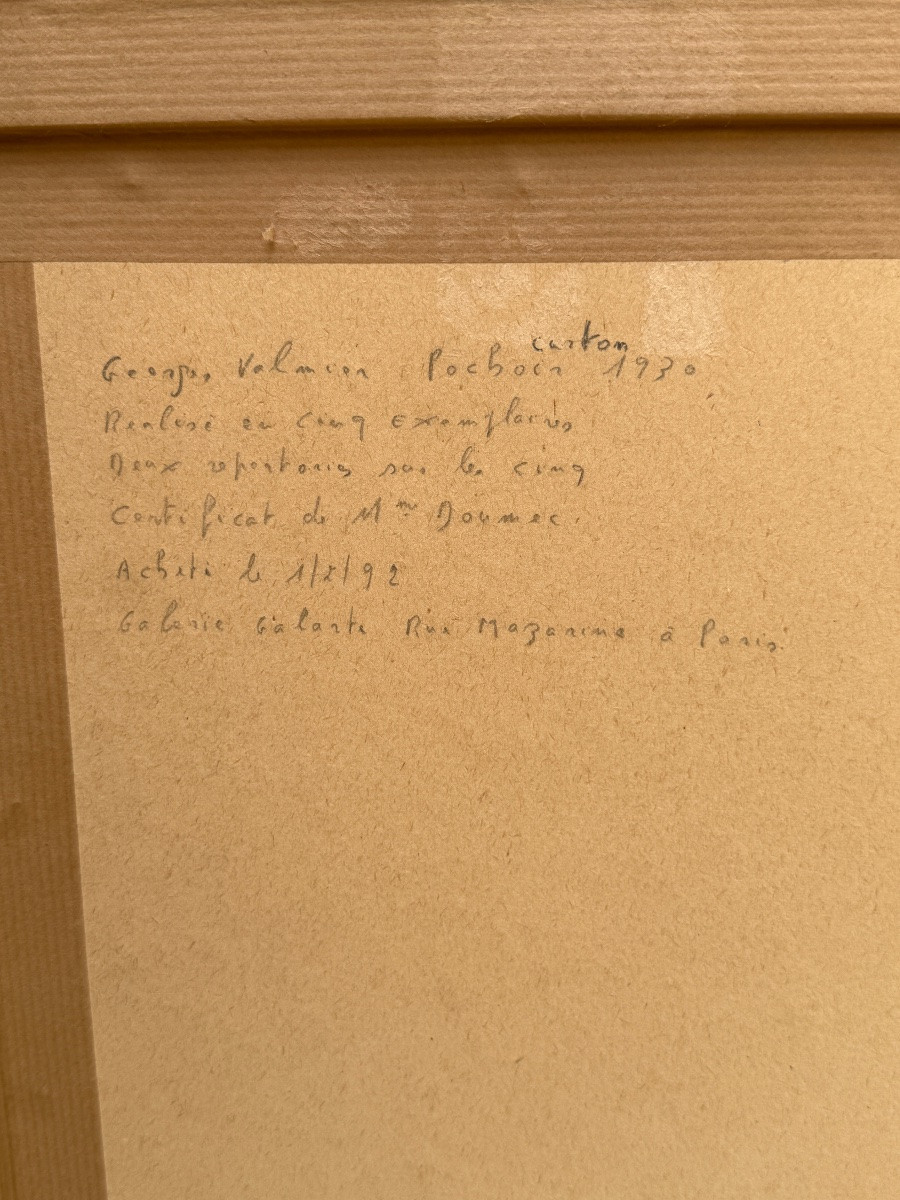 carton
Georges Valmier Pochoir 1930
Réalisé en cinq exemplaires
Deux repertories sur les cinq
Certificat de Mme Doumec.
Acheté le 1/2/92
Galerie Galarte Rue Mazarine à Paris